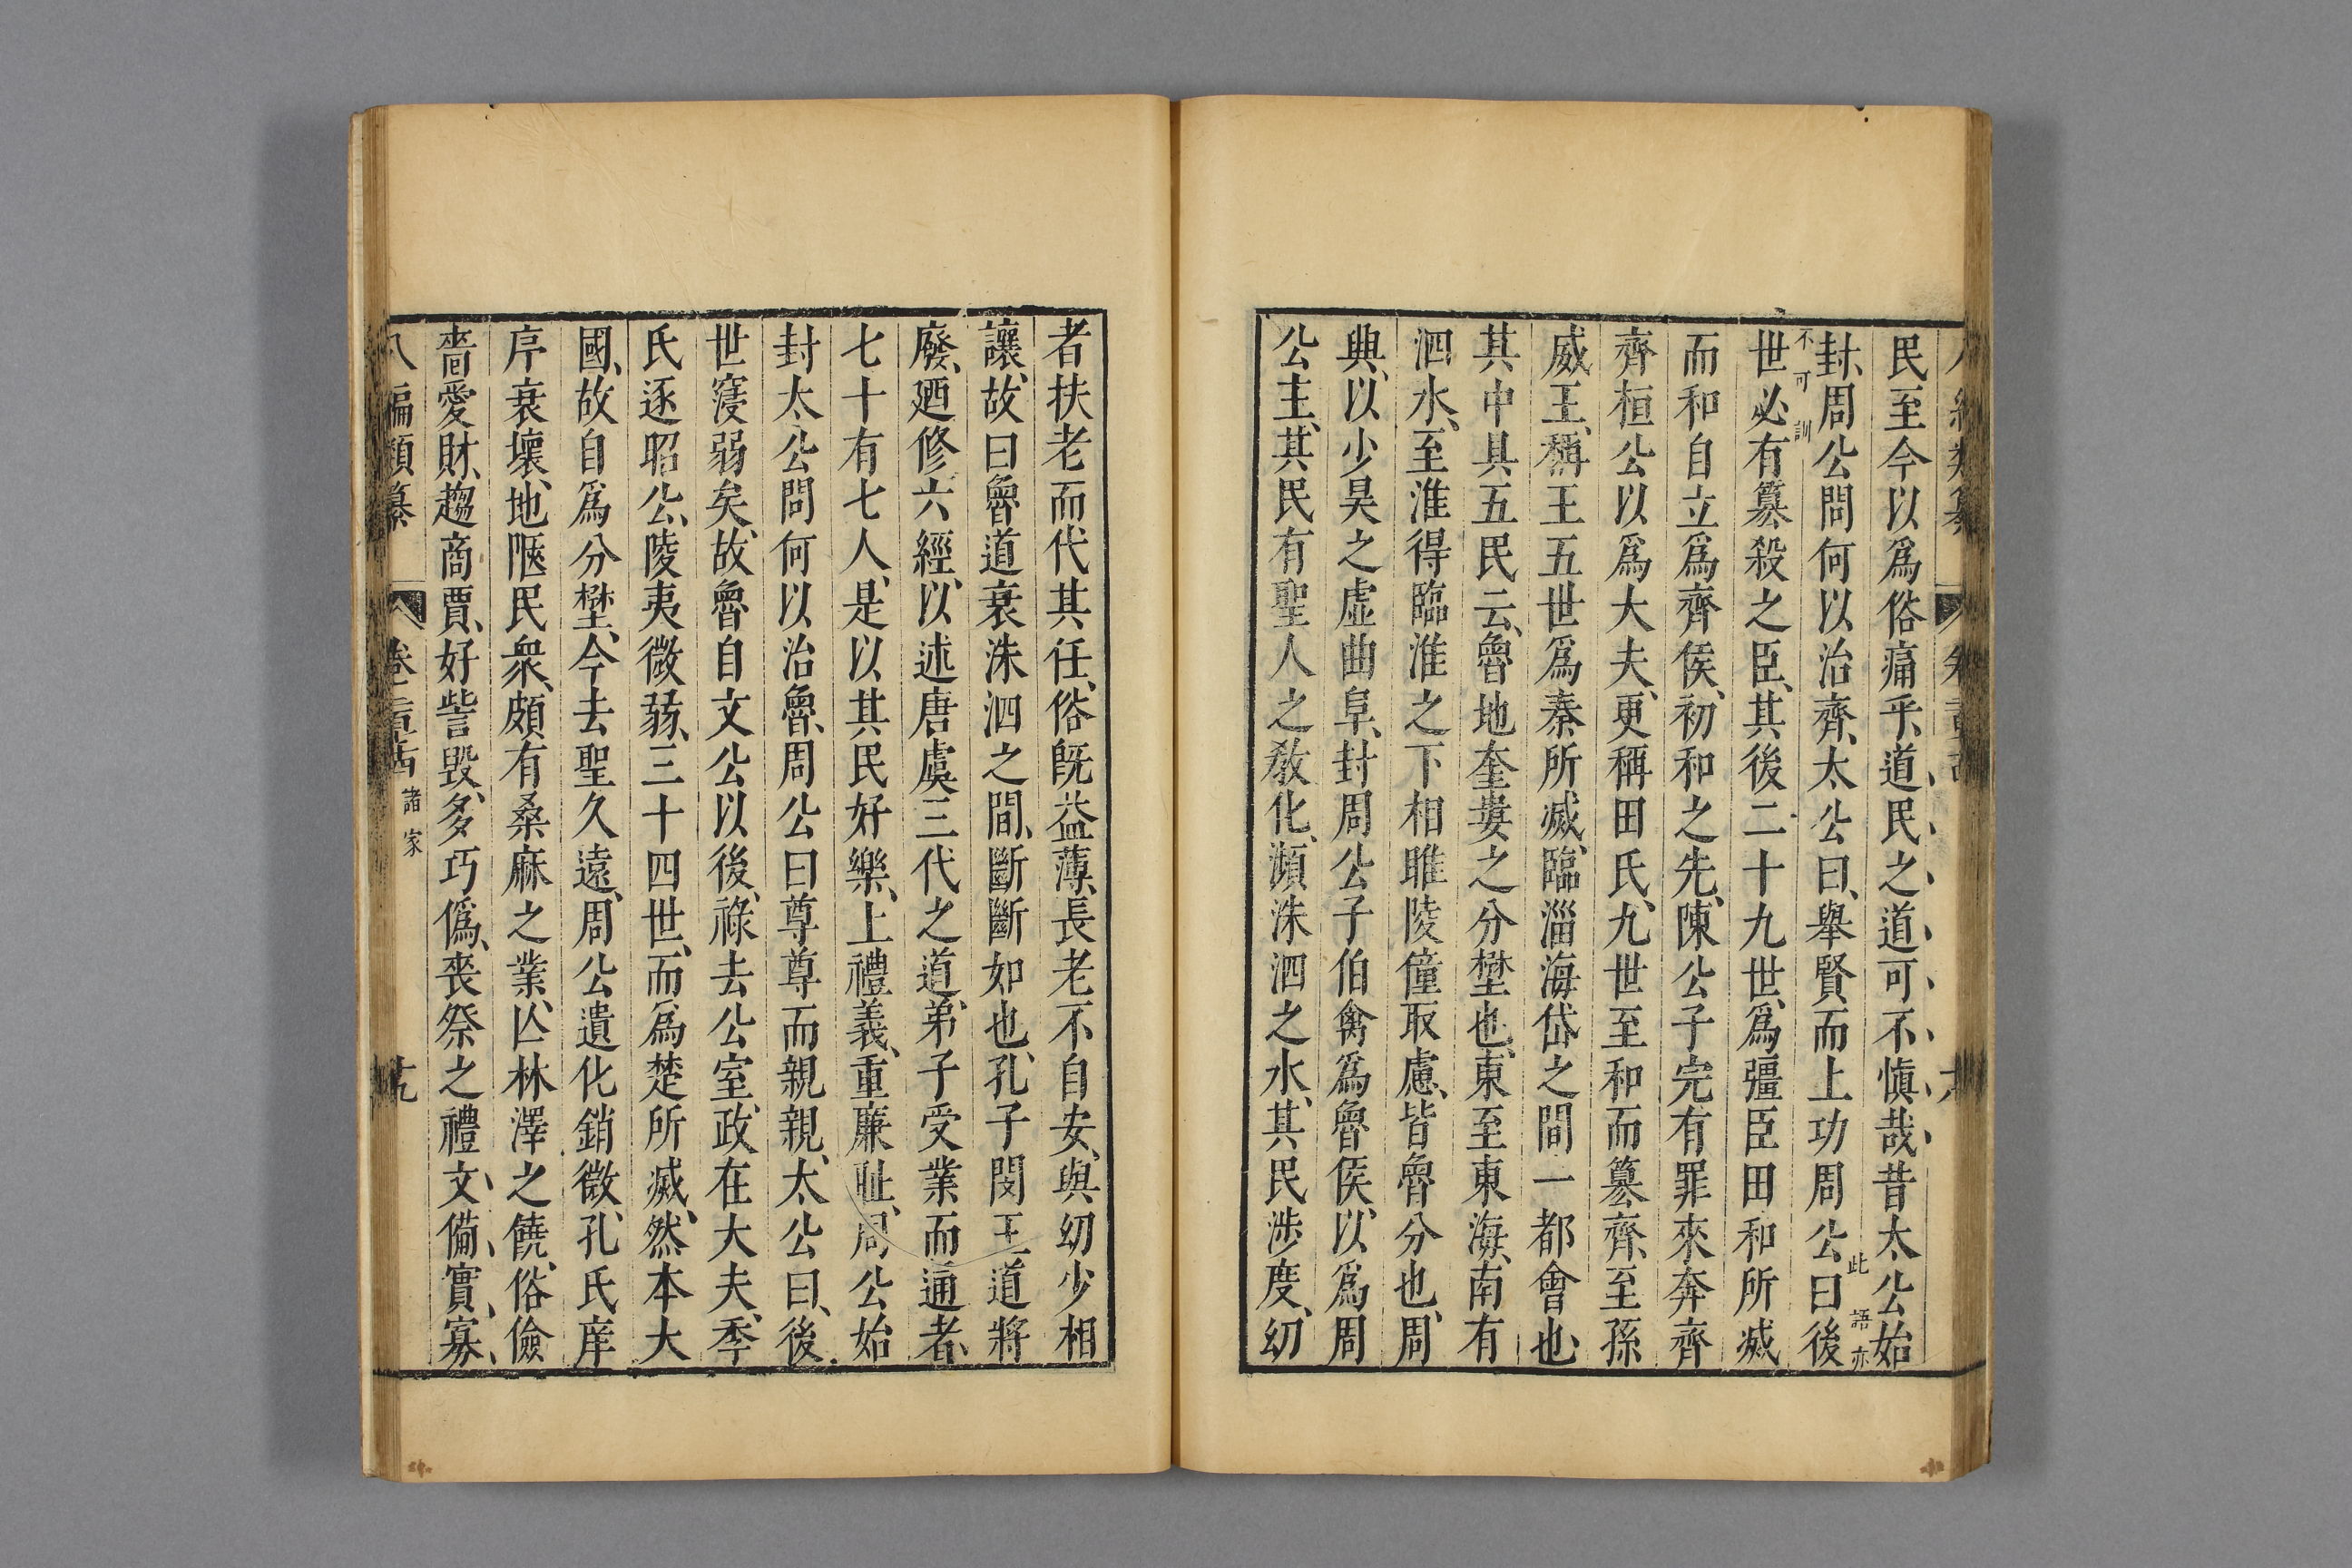 民至今以爲俗痛乎、道民之道可不慎哉昔太公始
封、周公問何以治齊、太公曰、舉賢而上功周公曰後
此語亦
不可訓
世必有篡殺之臣、其後二十九世、爲彊臣田和所滅
而和自立爲齊侯、初和之先、陳公子完有罪來奔齊
齊桓公以爲大夫、更稱田氏、九世至和而篡齊、至孫
威王、稱王五世爲秦所滅、臨淄海岱之間一都會也、
其中具五民云、魯地奎婁之分壄也、東至東海、南有
泗水、至淮得臨淮之下相睢陵僮取慮、皆魯分也、周
興、以少昊之虛曲阜、封周公子伯禽爲魯侯、以爲周
公主、其民有聖人之敎化、瀕洙泗之水、其民涉度、幼
者扶老而代其任、俗旣益薄、長老不自安、與幼少相
讓、故曰魯道衰洙泗之間、斷斷如也、孔子閔王道將
廢、廼修六經、以述唐虞三代之道、弟子受業而通者、
七十有七人、是以其民好樂、上禮義、重廉耻、周公始
封太公問何以治魯、周公曰尊尊而親親、太公曰、後
世寖弱矣、故魯自文公以後、祿去公室、政在大夫、季
氏逐昭公、陵夷微弱、三十四世、而爲楚所滅、然本大
國、故自爲分壄、今去聖久遠、周公遺化銷微、孔氏庠
序衰壞、地陿民衆、頗有桑麻之業、亾林澤之饒、俗儉
嗇愛財、趨商賈、好訾毁、多巧僞、喪祭之禮文備實寡、
八編類纂
諸家